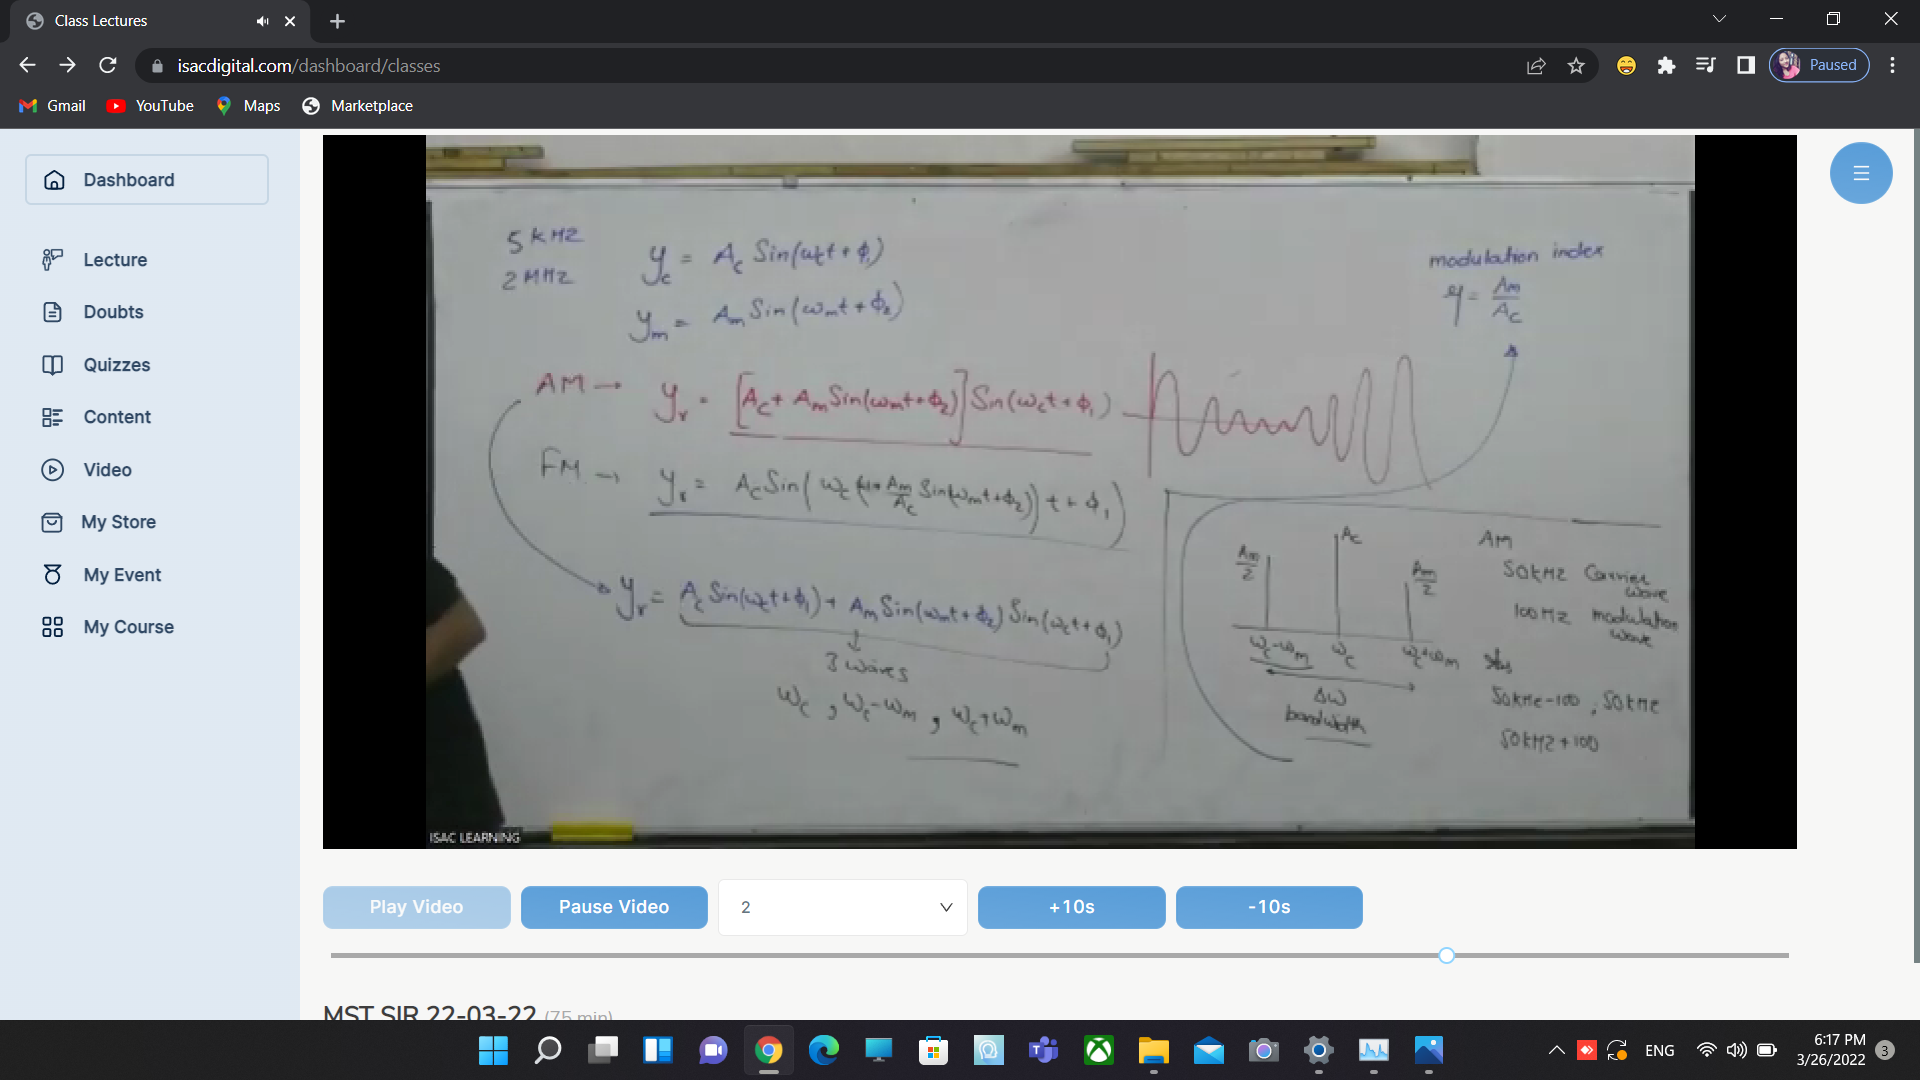 Class Lectures
isacdigital.com/dashboard/classes
Paused
Gmail YouTube Maps Marketplace
Dashboard
Lecture
Doubts
Quizzes
Content
Video
My Store
My Event
My Course
5 kHz
2 MHz
y_c = A_c Sin(ω_c t + φ_1)
y_m = A_m Sin(ω_m t + φ_2)
modulation index
η = A_m/A_c
AM → y_r = [A_c + A_m Sin(ω_m t + φ_2)] Sin(ω_c t + φ_1)
FM → y_r = A_c Sin(ω_c (1 + A_m/A_c Sin(ω_m t + φ_2)) t + φ_1)
y_r = A_c Sin(ω_c t + φ_1) + A_m Sin(ω_m t + φ_2) Sin(ω_c t + φ_1)
3 waves
ω_c , ω_c-ω_m , ω_c+ω_m
A_m/2 A_c A_m/2
ω_c-ω_m ω_c ω_c+ω_m
Δω
bandwidth
AM
50kHz Carrier wave
100Hz modulation wave
50kHz-100 , 50kHz
50kHz+100
ISAC LEARNING
Play Video Pause Video 2 +10s -10s
MST SIR 22-03-22 (75 min)
ENG
6:17 PM
3/26/2022
3